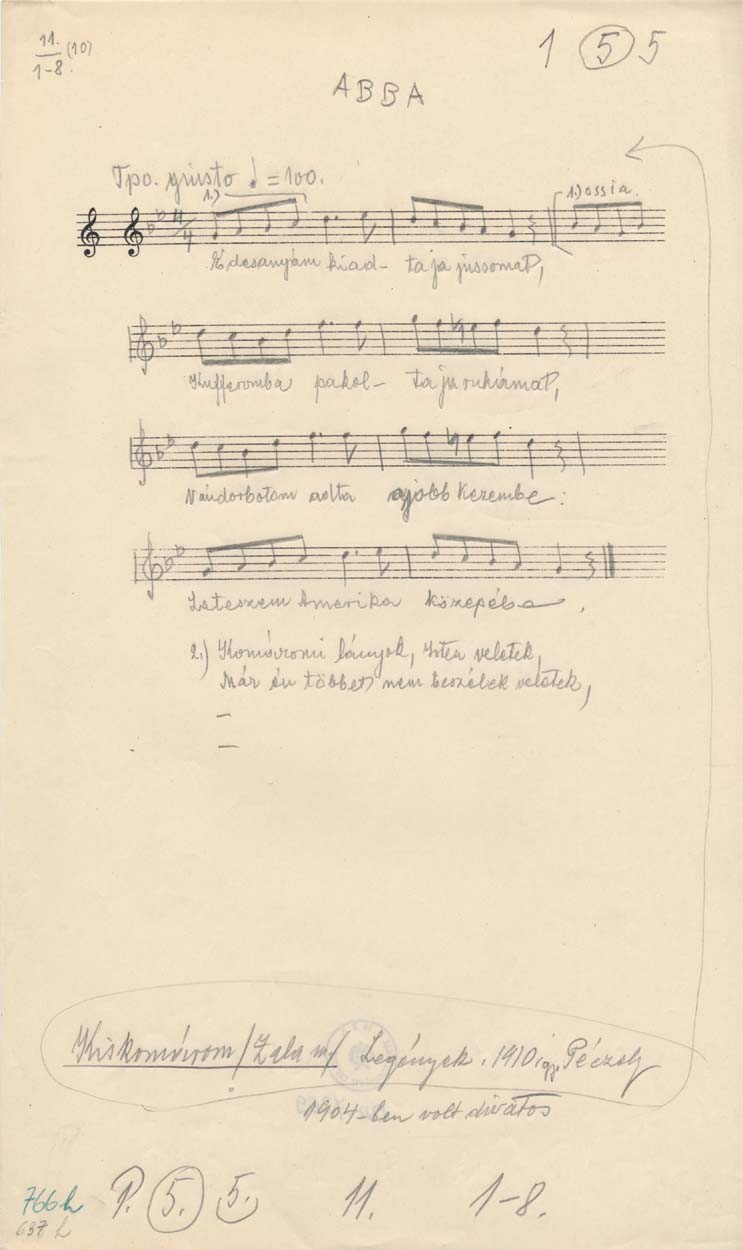 11. (10)
1-8.
1 5 5
ABBA
Tpo. giusto ♩ = 100.
1.)
1.) ossia.
Édesanyám kiad- ta ja jussomat,
Kufferomba pakol- ta ja ruhámat,
Vándorbotom adta ajobb kezembe:
Leteszem Amerika közepébe,
2.) Komáromi lányok, Isten veletek,
Már én többet nem beszélek veletek,
–
–
Kiskomárom /Zala m/ Legények. 1910 Péczely
1904-ben volt divatos
766 h P. 5. 5. 11. 1-8.
637 h